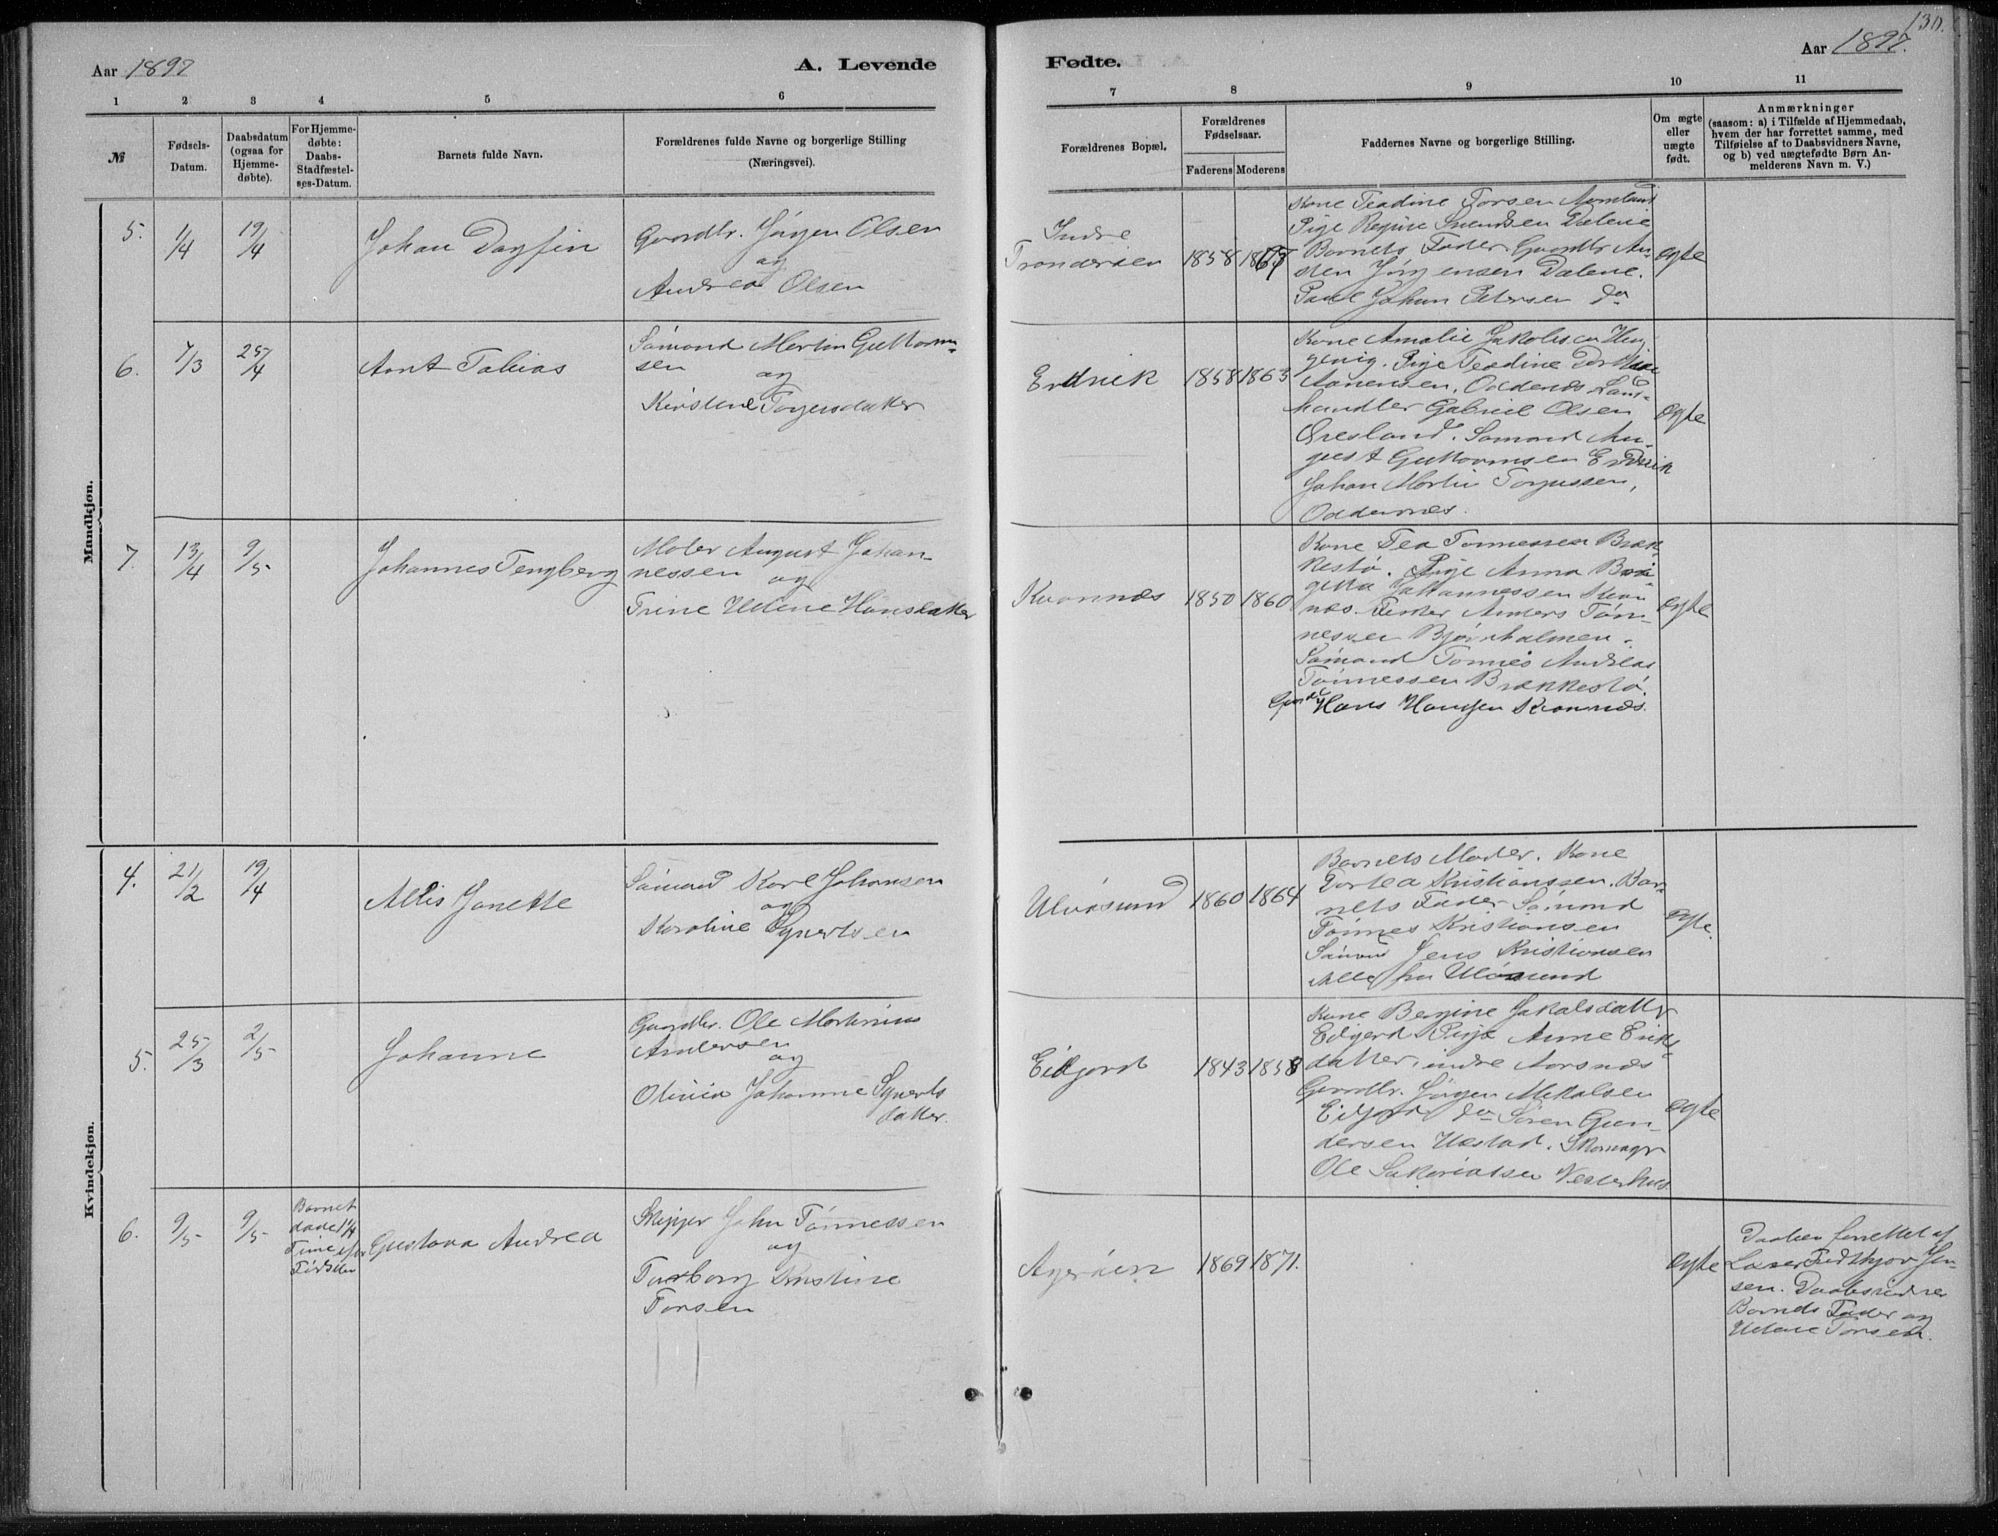 130.
Aar 1897
A. Levende
Fødte.
Aar 1897.
1
2
3
4
5
6
7
8
9
10
11
№
Fødsels-
Datum.
Daabsdatum
(ogsaa for
Hjemme-
døbte).
For Hjemme-
døbte:
Daabs-
Stadfæstel-
ses-Datum.
Barnets fulde Navn.
Forældrenes fulde Navne og borgerlige Stilling
(Næringsvei).
Forældrenes Bopæl.
Forældrenes
Fødselsaar.
Faderens
Moderens
Faddernes Navne og borgerlige Stilling.
Om ægte
eller
uægte
født.
Anmærkninger
(saasom: a) i Tilfælde af Hjemmedaab,
hvem der har forrettet samme, med
Tilføielse af to Daabsvidners Navne,
og b) ved uægtefødte Børn An-
melderens Navn m. V.)
Mandkjøn.
5.
1/4
19/4
Johan Dagfin
Gaardbr. Jörgen Olsen
og
Andrea Olsen
Indre
1858
Kone Teadine Torsen
Pige Regine Svendsen Dalene
Barnets Fader. Gaardbr
sten Jörgensen Dalene.
Paul Johan Petersen do
ægte
6.
7/3
25/4
Arnt Tobias
Sömand Martin Guttorm-
sen
og
Kirstine Torjersdatter
Erdvik
1858
1863
Kone Amalie Jakobsen
Pige Teadine
Oddernes
handler Gabriel Olsen
Sömand Au-
gust Guttormsen Erdvik
Johan Martin Torjussen,
Oddernes.
ægte
7.
13/4
9/5
Johannes Tengberg
Maler August Johan-
nessen og
Trine Helene Hansdatter
Kvannes
1850
1860
Kone Tea Tönnessen Bræk-
kestø. Pige Anna
Johannessen Kvan-
nes. Fisker Anders Tön-
nessen Bjørnholmen.
Sömand Tönnes Andreas
Tönnessen Brækkestö.
Hans Hansen Kvannes.
ægte
Kvindekjøn.
4.
21/2
19/4
Allis Janette
Sömand Karl Johansen
og
Karoline Syvertsen
Ulvösund
1860
1864
Barnets Moder. Kone
Kristianssen. Bar-
nets Fader Sömand
Tönnes Kristiansen
Sömand Jens Kristiansen
Alle fra Ulvösund
ægte.
5.
25/3
2/5
Johanne
Gaardbr. Ole Martinius
Andersen
og
Olivia Johanne Syverts
datter.
Eidjord
1843
1858
Kone Bergine Jakobsdatter
Eidjord Pige Anne Eriks-
datter, indre Aarsnes
Gaardbr. Jörgen Mikalsen
Eidjord do Sören Gun-
dersen Ulestad. Skomager
Ole Sakariassen Vesterhus
ægte
6.
9/5
9/5
Barnet
døde 1/4
Time efter
Födslen
Gustava Andrea
Skipper John Tönnessen
og
Torborg Kristine
Torsen
Ageröen
1869
1871.
ægte
Daaben forrettet af
Lærer Fridthjov Jen-
sen. Daabsvidner
Barnets Fader og
Helene Torsen.